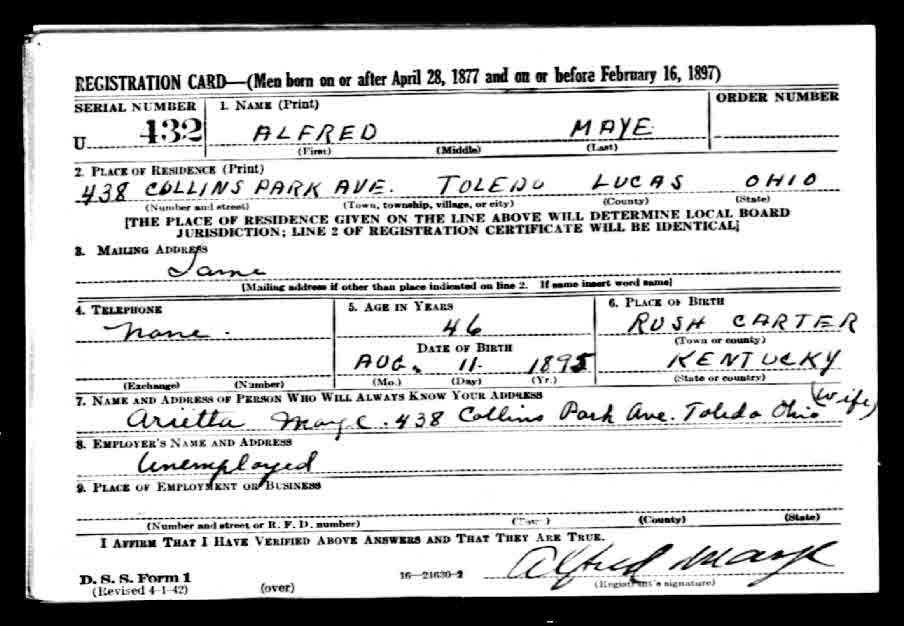 REGISTRATION CARD—(Men born on or after April 28, 1877 and on or before February 16, 1897)
SERIAL NUMBER 1. NAME (Print) ORDER NUMBER
U 432 ALFRED MAYE
(First) (Middle) (Last)
2. PLACE OF RESIDENCE (Print)
438 COLLINS PARK AVE. TOLEDO LUCAS OHIO
(Number and street) (Town, township, village, or city) (County) (State)
[THE PLACE OF RESIDENCE GIVEN ON THE LINE ABOVE WILL DETERMINE LOCAL BOARD
JURISDICTION; LINE 2 OF REGISTRATION CERTIFICATE WILL BE IDENTICAL]
3. MAILING ADDRESS
Same
[Mailing address if other than place indicated on line 2. If same insert word same]
4. TELEPHONE 5. AGE IN YEARS 6. PLACE OF BIRTH
None. 46 RUSH CARTER
DATE OF BIRTH (Town or county)
AUG. 11. 1895 KENTUCKY
(Exchange) (Number) (Mo.) (Day) (Yr.) (State or country)
7. NAME AND ADDRESS OF PERSON WHO WILL ALWAYS KNOW YOUR ADDRESS
Arietta Maye. 438 Collins Park Ave. Toledo Ohio (Wife)
8. EMPLOYER'S NAME AND ADDRESS
Unemployed
9. PLACE OF EMPLOYMENT OR BUSINESS
(Number and street or R. F. D. number) (Town) (County) (State)
I AFFIRM THAT I HAVE VERIFIED ABOVE ANSWERS AND THAT THEY ARE TRUE.
Alfred Maye
D. S. S. Form 1 16—21630-2 (Registrant's signature)
(Revised 4-1-42) (over)